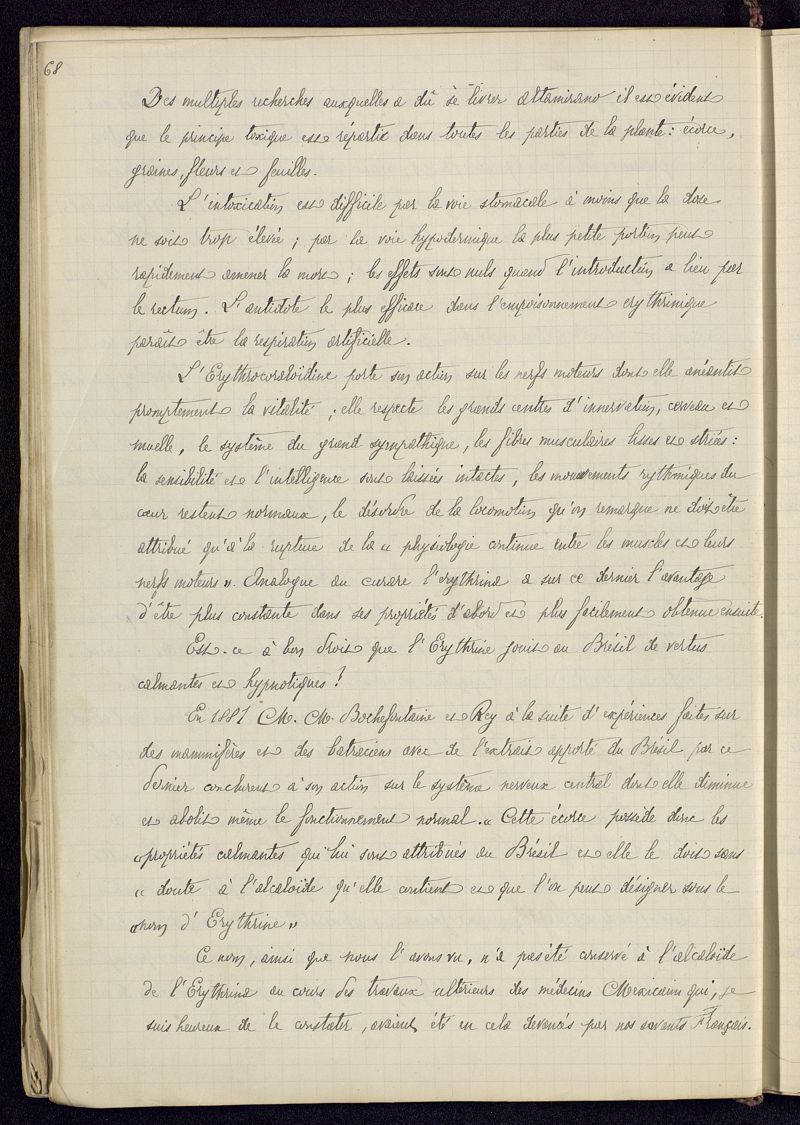 68
Des multiples recherches auxquelles a dû se livrer altamirano il est évident
que le principe toxique est répartit dans toutes les parties de la plante : écorce,
graines, fleurs et feuilles.
L'intoxication est difficile par la voie stomacale à moins que la dose
ne soit trop élevée ; par la voie hypodermique la plus petite portion peut
rapidement amener la mort ; les effets sont nuls quand l'introduction a lieu par
le rectum. L'antidote le plus efficace dans l'empoisonnement erythrinique
paraît être la respiration artificielle.
L'Erythrocoraloïdine porte son action sur les nerfs moteurs dont elle anéantit
promptement la vitalité ; elle respecte les grands centres d'innervation, cerveau et
moelle, le système du grand sympathique, les fibres musculaires lisses et striées :
la sensibilité et l'intelligence sont laissées intactes, les mouvements rythmiques du
cœur restent normaux, le désordre de la locomotion qu'on remarque ne doit être
attribué qu'à la rupture de la « physiologie continue entre les muscles et leurs
nerfs moteurs ». Analogue au curare l'erythrina a sur ce dernier l'avantage
d'être plus constante dans ses propriétés d'abord et plus facilement obtenue ensuite.
Est-ce à bon droit que l'Erythrine jouit au Brésil de vertus
calmantes et hypnotiques ?
En 1881 M. M. Bochefontaine et Rey à la suite d'expériences faites sur
des mammifères et des batraciens avec de l'extrait apporté du Brésil par ce
dernier conclurent à son action sur le système nerveux central dont elle diminue
et abolit même le fonctionnement normal. « Cette écorce possède donc les
« propriétés calmantes qui lui sont attribués au Brésil et elle le doit sans
« doute à l'alcaloïde qu'elle contient et que l'on peut désigner sous le
« nom d'Erythrine »
Ce nom, ainsi que nous l'avons vu, n'a pas été conservé à l'alcaloïde
de l'Erythrina au cours des travaux ultérieurs des médecins Mexicains qui, je
suis heureux de le constater, avaient été en cela devancés par nos savants Français.